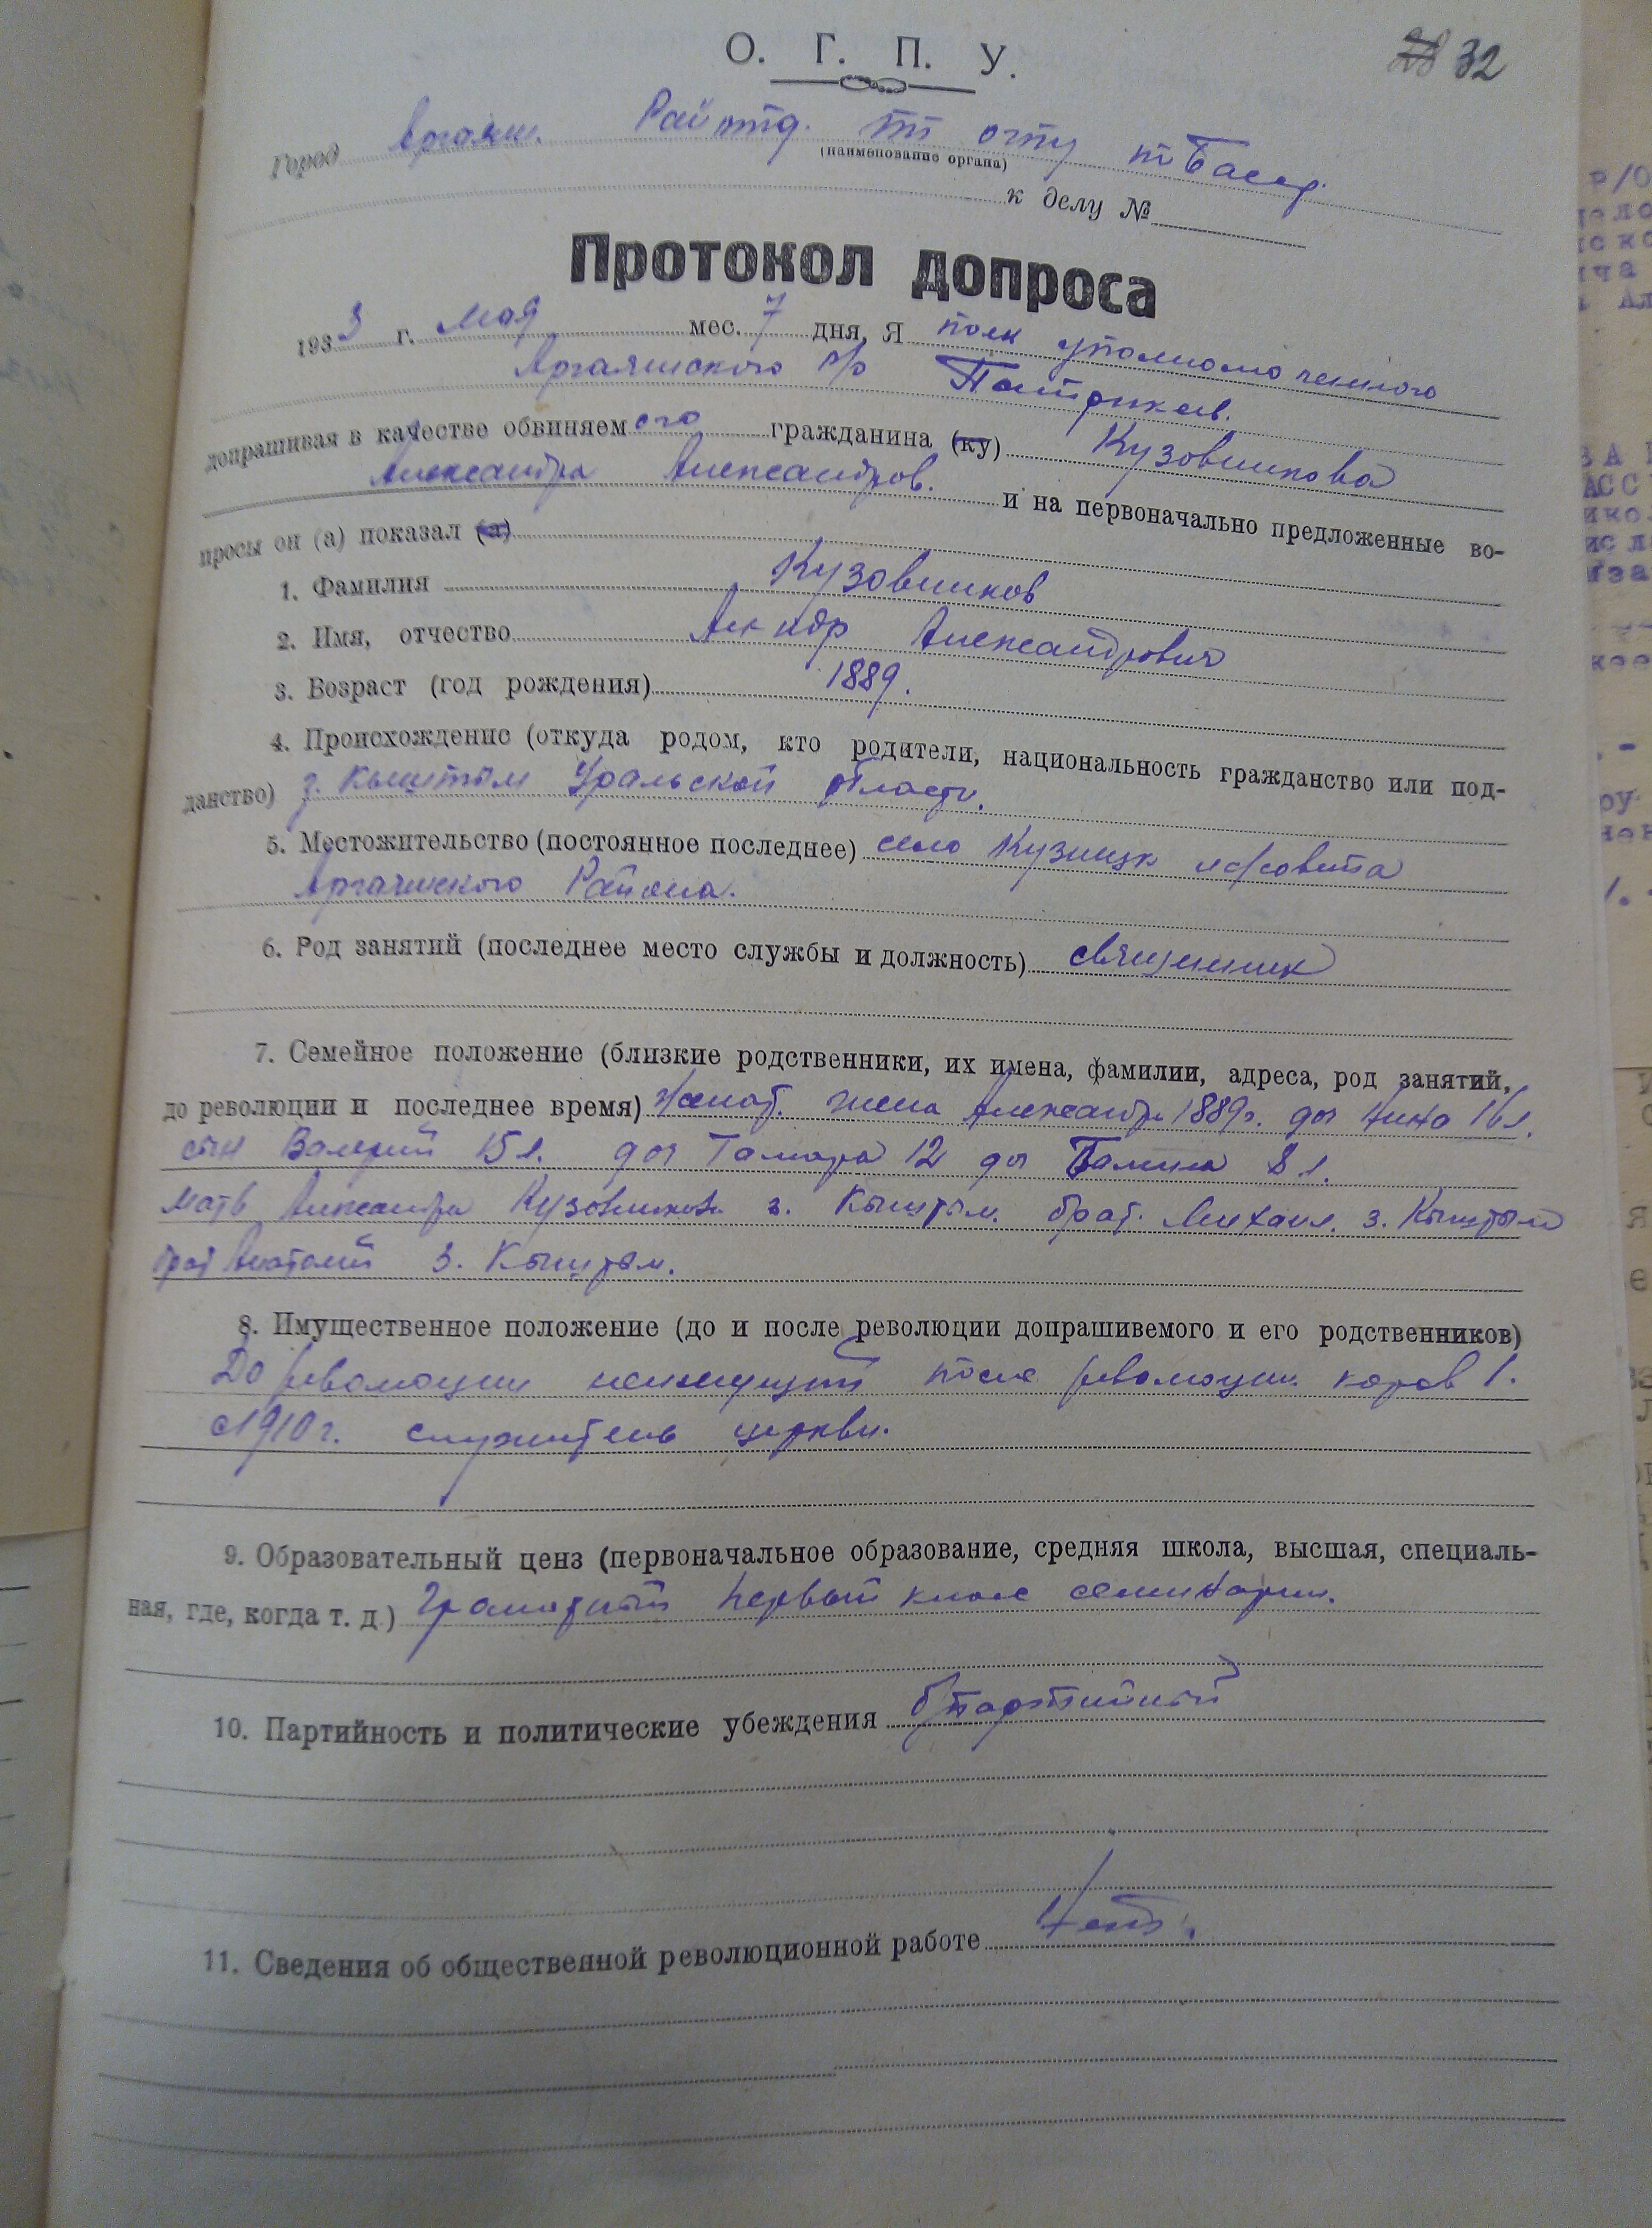 32
О. Г. П. У.
Город Аргаяш. Рай отд. ПП ОГПУ по Башр.
(наименование органа)
к делу №
Протокол допроса
1933 г. Мая мес. 7 дня, Я пом уполномоченного
Аргаяшского р/о Патрикеев.
допрашивая в качестве обвиняемого гражданина (ку) Кузовникова
Александра Александров. и на первоначально предложенные во-
просы он (а) показал (а)
1. Фамилия Кузовников
2. Имя, отчество Ал-ндр Александрович
3. Возраст (год рождения) 1889.
4. Происхождение (откуда родом, кто родители, национальность гражданство или под-
данство) г. Кыштым Уральской области.
5. Местожительство (постоянное последнее) село Кузнецк с/совета
Аргаяшского Района.
6. Род занятий (последнее место службы и должность) священник
7. Семейное положение (близкие родственники, их имена, фамилии, адреса, род занятий,
до революции и последнее время) Женат. жена Александр 1889г. доч Нина 16 л.
сын Валерий 15 л. доч Тамара 12 доч Галина 8 л.
Мать Александра Кузовникова г. Кыштым. брат. Михаил. г. Кыштым
брат Анатолий г. Кыштым.
8. Имущественное положение (до и после революции допрашивемого и его родственников)
До революции неимущий после революции коров 1.
с 1910 г. служитель церкви.
9. Образовательный ценз (первоначальное образование, средняя школа, высшая, специаль-
ная, где, когда т. д.) Грамотный первый клас семинарии.
10. Партийность и политические убеждения б/партийный
11. Сведения об общественной революционной работе Нет.